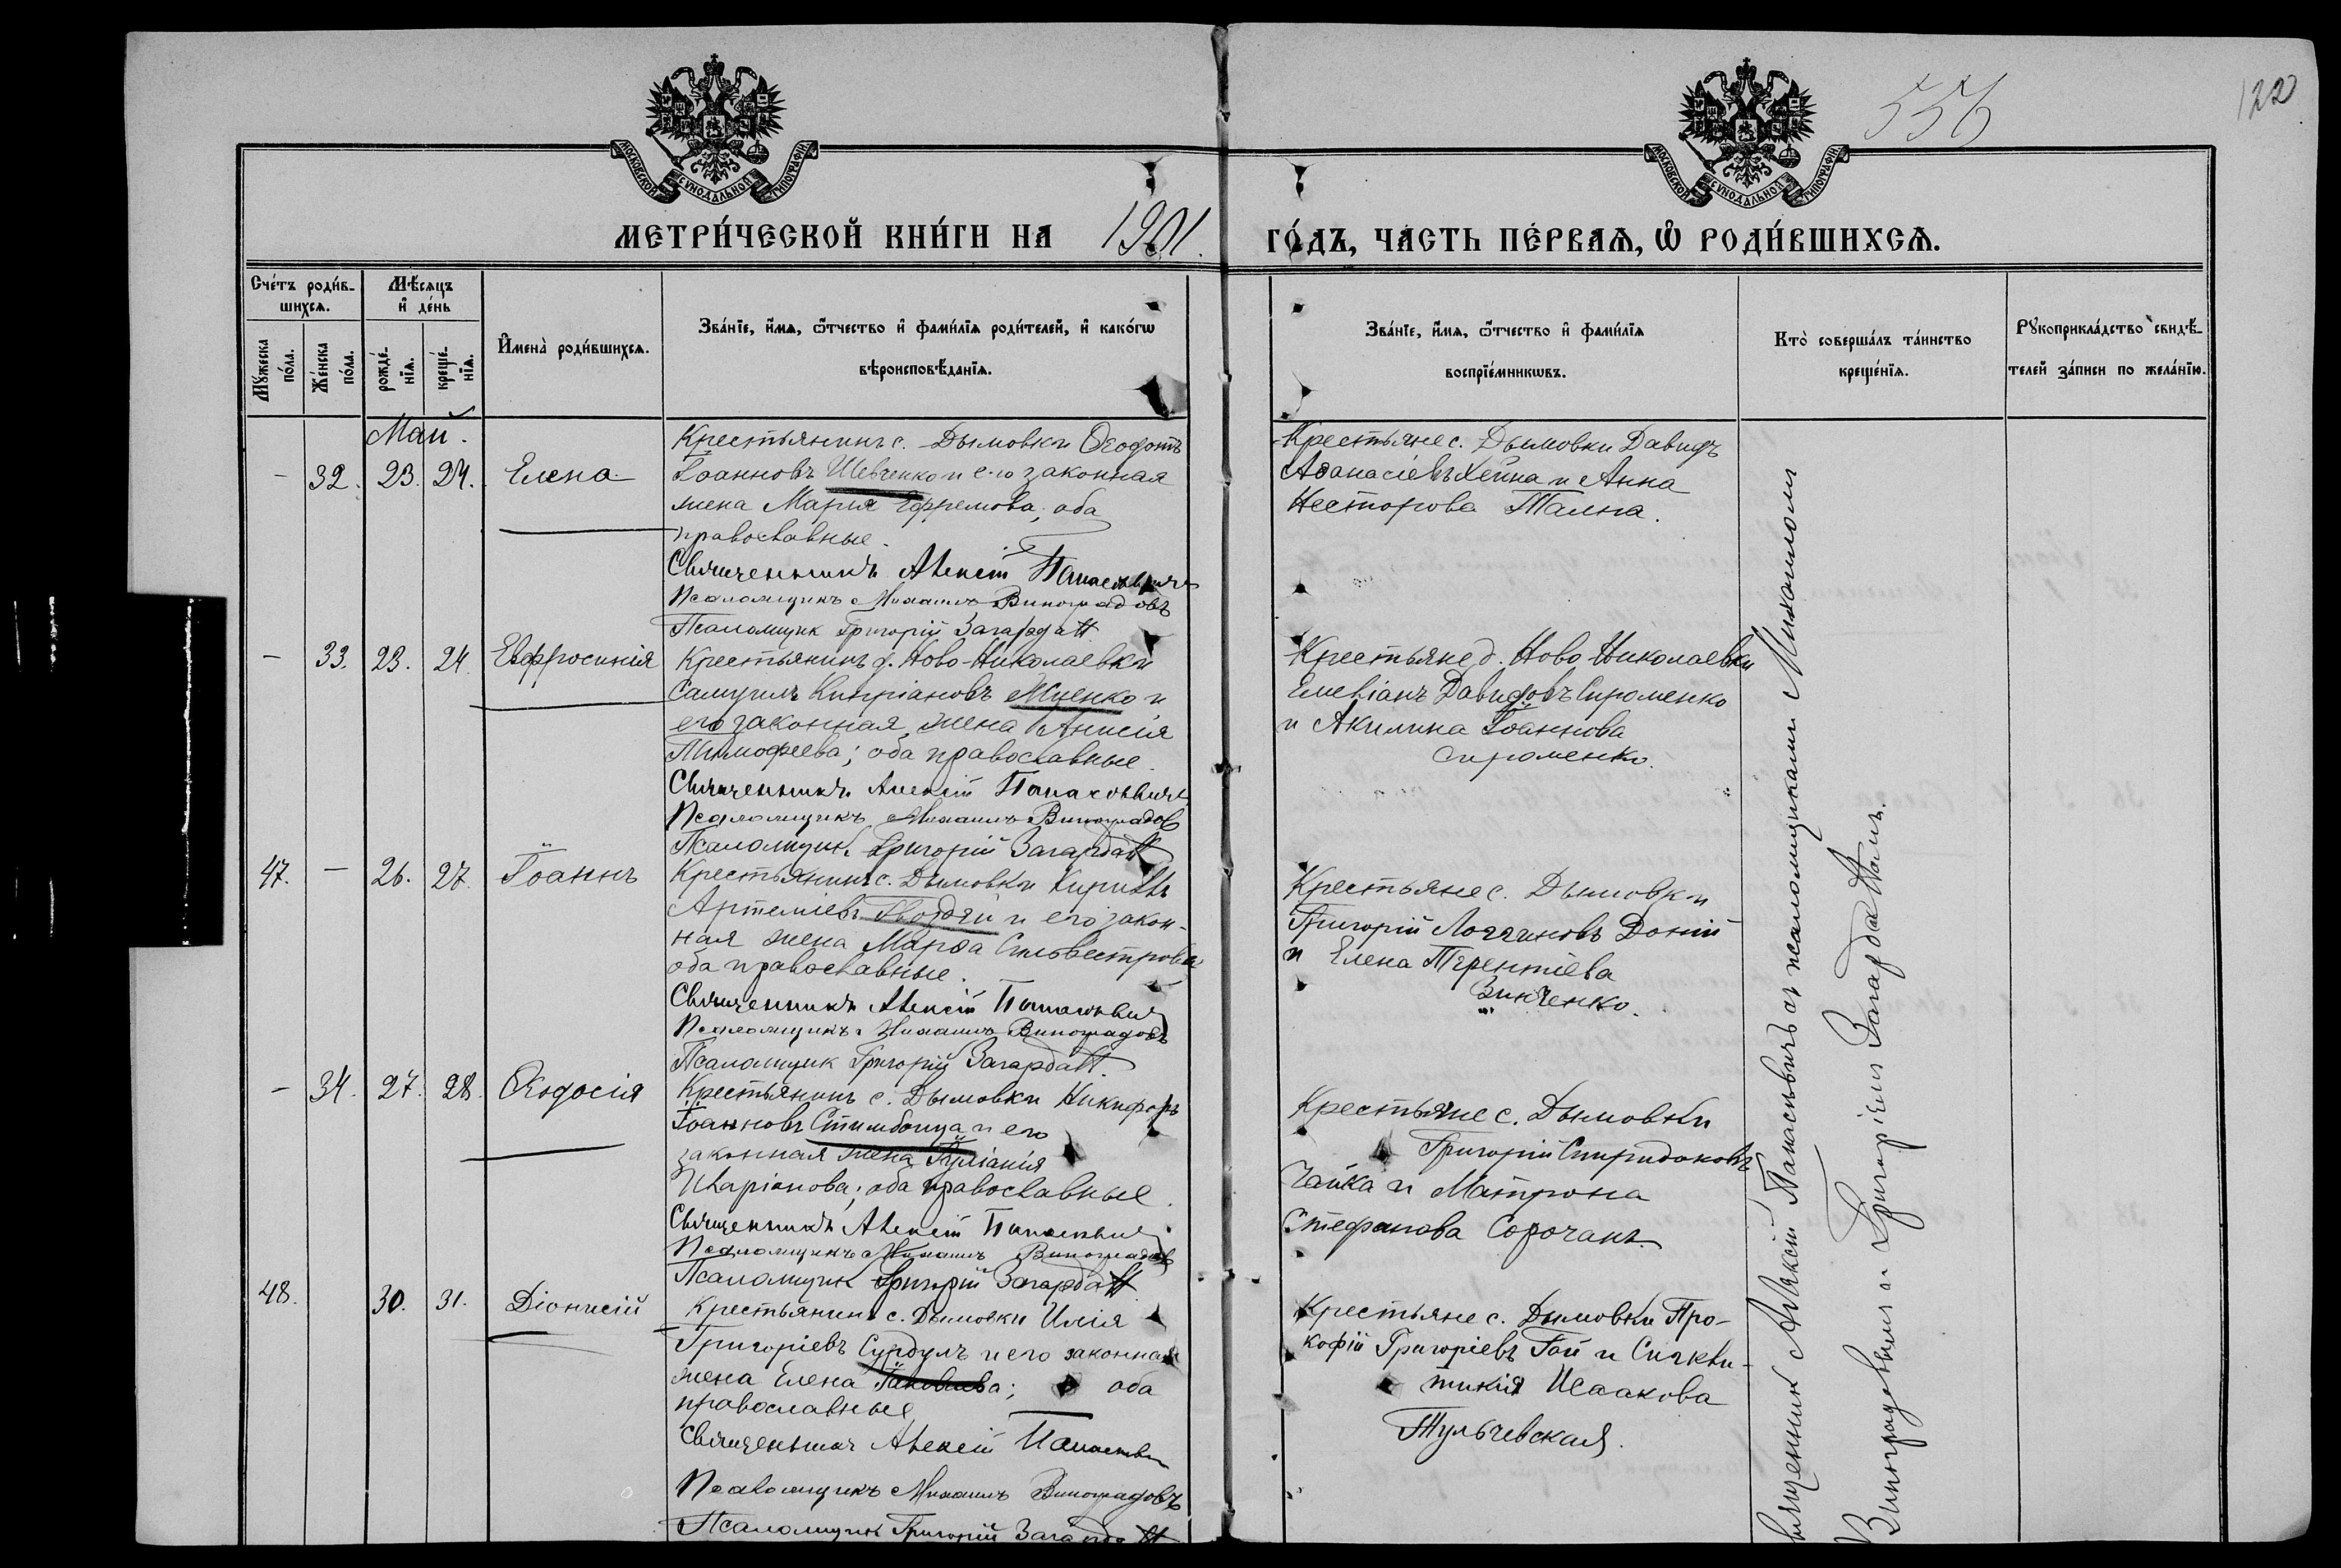 556
122
МОСКОВСКОЙ СУНОДАЛЬНОЙ ТИПОГРАФІИ
МОСКОВСКОЙ СУНОДАЛЬНОЙ ТИПОГРАФІИ
МЕТРИ́ЧЕСКОЙ КНИ́ГИ НА 1901. ГО́ДЪ, ЧА́СТЬ ПЕ́РВАѦ, Ѽ РОДИ́ВШИХСѦ.
Сче́тъ роди́в-
шихсѧ.
Мꙋ́жеска по́ла.
Же́нска по́ла.
Мѣ́сѧцъ
и҆ де́нь
рожде́-
нїѧ.
креще́-
нїѧ.
И҆мена̀ роди́вшихсѧ.
Зва́нїе, и҆́мѧ, ѻ҆́тчество и҆ фами́лїѧ роди́телей, и҆ како́гѡ
вѣроисповѣ́данїѧ.
Зва́нїе, и҆́мѧ, ѻ҆́тчество и҆ фами́лїѧ
воспрїе́мникѡвъ.
Кто̀ соверша́лъ та́инство
креще́нїѧ.
Рꙋкоприкла́дство свидѣ́-
телей за́писи по жела́нїю.
Май.
— 32. 23. 24. Елена
Крестьянинъ с. Дымовки Ѳеодотъ
Іоанновъ Шевченко и его законная
жена Марія Ефремова; оба
православные.
Священникъ Алексій Панасевичъ
Псаломщикъ Михаилъ Виноградовъ
Псаломщик Григорій Загардан
Крестьяне с. Дымовки Давидъ
Аѳанасіевъ Хейна и Анна
Несторова Тална.
— 33. 23. 24. Евфросинія
Крестьянинъ д. Ново-Николаевки
Самуилъ Кипріановъ Яценко и
его законная жена Анисія
Тимофеева; оба православные.
Священникъ Алексій Панасевичъ
Псаломщикъ Михаилъ Виноградов
Псаломщик Григорій Загардан
Крестьяне д. Ново-Николаевки
Емеліанъ Давидовъ Сироменко
и Акилина Іоаннова
Сироменко.
47. — 26. 27. Іоаннъ
Крестьянинъ с. Дымовки Кириллъ
Артеміевъ Гвоздей и его закон-
ная жена Марѳа Сильвестрова
оба православные.
Священникъ Алексій Панасевич
Псаломщикъ Михаилъ Виноградовъ
Псаломщик Григорій Загардан.
Крестьяне с. Дымовки
Григорій Логгиновъ Доній
и Елена Терентіева
Зинченко.
— 34. 27. 28. Ѳеодосія
Крестьянинъ с. Дымовки Никифоръ
Іоанновъ Стимбоица и его
законная жена Іуліанія
Иларіонова; оба православные.
Священникъ Алексій Панасевич
Псаломщикъ Михаилъ Виноградовъ
Псаломщик Григорій Загардан
Крестьяне с. Дымовки
Григорій Спиридоновъ
Чайка и Матрона
Стефанова Сорочанъ.
48. 30. 31. Діонисій
Крестьянинъ с. Дымовки Илія
Григоріевъ Сурдулъ и его законная
жена Елена Іаковлева; оба
православные
Священникъ Алексій Панасевич
Псаломщикъ Михаилъ Виноградовъ
Псаломщик Григорій Загардан
Крестьяне с. Дымовки Про-
кофій Григоріевъ Гай и Синкли-
тикія Исаакова
Тульчевская.
Священник Алексій Панасевичъ съ псаломщиками Михаиломъ
Виноградовым и Григоріемъ Загарданомъ.